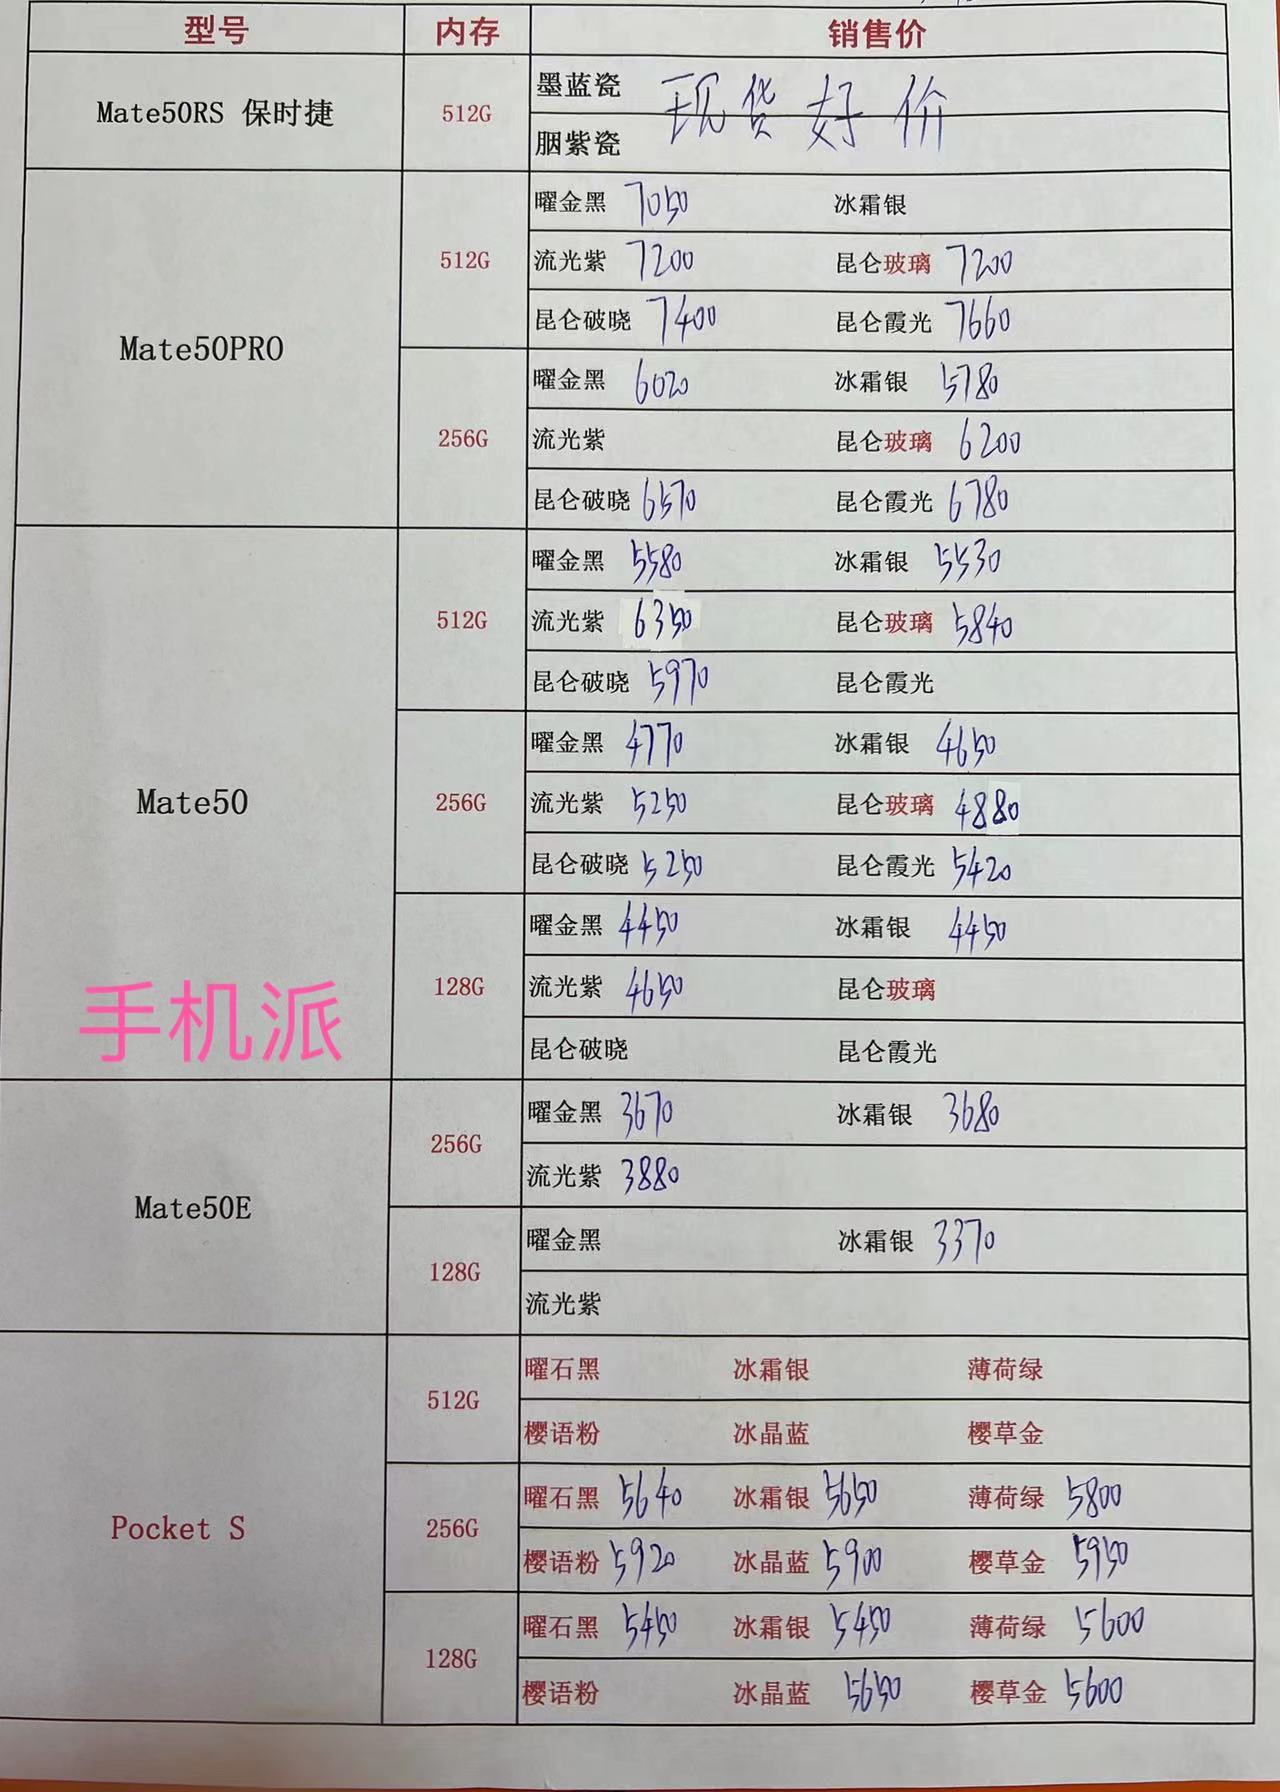 型号 内存 销售价
Mate50RS 保时捷 512G 墨蓝瓷 现货好价
胭紫瓷
Mate50PRO 512G 曜金黑 7050 冰霜银
流光紫 7200 昆仑玻璃 7200
昆仑破晓 7400 昆仑霞光 7660
256G 曜金黑 6020 冰霜银 5780
流光紫 昆仑玻璃 6200
昆仑破晓 6570 昆仑霞光 6780
Mate50 512G 曜金黑 5580 冰霜银 5530
流光紫 6350 昆仑玻璃 5840
昆仑破晓 5970 昆仑霞光
256G 曜金黑 4770 冰霜银 4650
流光紫 5250 昆仑玻璃 4880
昆仑破晓 5250 昆仑霞光 5420
128G 曜金黑 4450 冰霜银 4450
流光紫 4650 昆仑玻璃
昆仑破晓 昆仑霞光
手机派
Mate50E 256G 曜金黑 3670 冰霜银 3680
流光紫 3880
128G 曜金黑 冰霜银 3370
流光紫
Pocket S 512G 曜石黑 冰霜银 薄荷绿
樱语粉 冰晶蓝 樱草金
256G 曜石黑 5640 冰霜银 5650 薄荷绿 5800
樱语粉 5920 冰晶蓝 5900 樱草金 5950
128G 曜石黑 5450 冰霜银 5450 薄荷绿 5600
樱语粉 冰晶蓝 5650 樱草金 5600